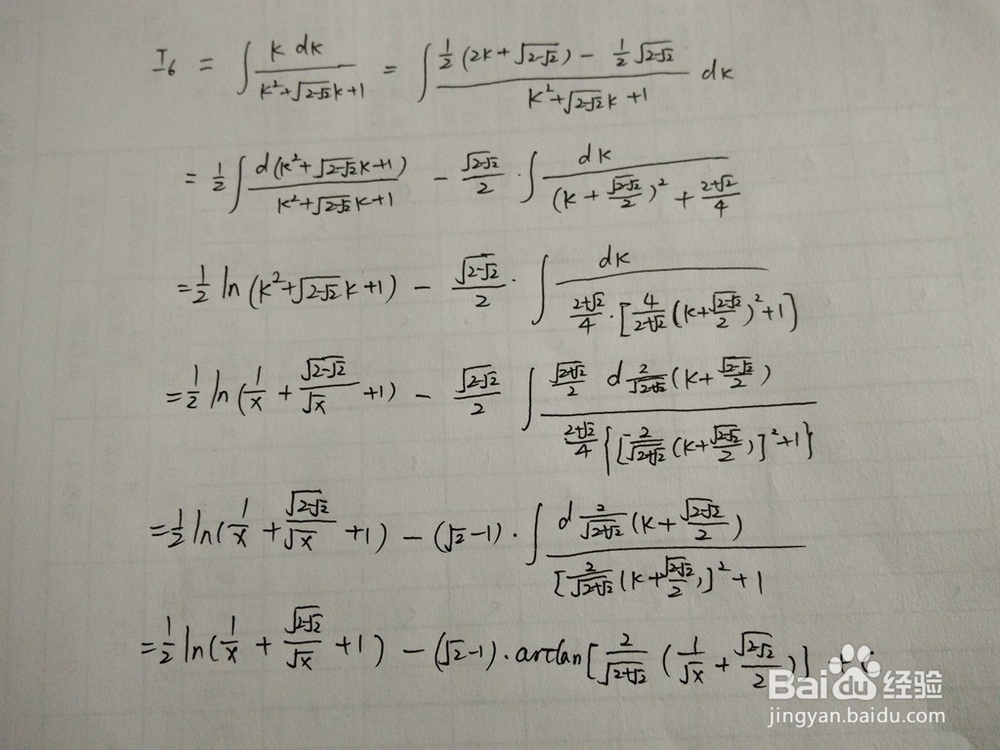 I₆ = ∫ k dk / (k²+√(2-√2)k+1) = ∫ [½(2k+√(2-√2)) - ½√(2-√2)] / (k²+√(2-√2)k+1) dk
= ½∫ d(k²+√(2-√2)k+1) / (k²+√(2-√2)k+1) - √(2-√2)/2 · ∫ dk / [(k+√(2-√2)/2)² + (2+√2)/4]
= ½ ln(k²+√(2-√2)k+1) - √(2-√2)/2 · ∫ dk / {(2+√2)/4 · [4/(2+√2) (k+√(2-√2)/2)²+1]}
= ½ ln(1/x + √(2-√2)/√x + 1) - √(2-√2)/2 ∫ √(2+√2)/2 d 2/√(2+√2) (k+√(2-√2)/2) / ((2+√2)/4 {[2/√(2+√2) (k+√(2-√2)/2)]²+1})
= ½ ln(1/x + √(2-√2)/√x + 1) - (√2-1) · ∫ d 2/√(2+√2) (k+√(2-√2)/2) / {[2/√(2+√2) (k+√(2-√2)/2)]²+1}
= ½ ln(1/x + √(2-√2)/√x + 1) - (√2-1) · arctan[2/√(2+√2) (1/√x + √(2-√2)/2)] + C
Baidu经验
jingyan.baidu.com